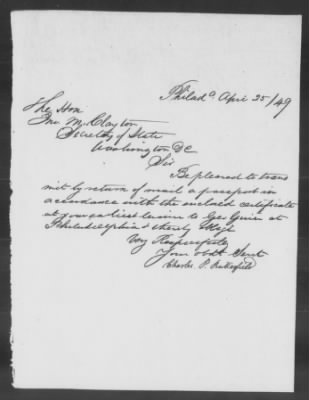 Philada April 25/49
The Hon
Jno. M. Clayton
Secretary of State
Washington DC
Sir
Be pleased to trans
mit by return of mail a passport in
accordance with the enclosed certificate
at your earliest leisure to Geo
Philadelphia & thereby Oblige
Very Respectfully
Your obdt Servt
Charles P. Butterfield